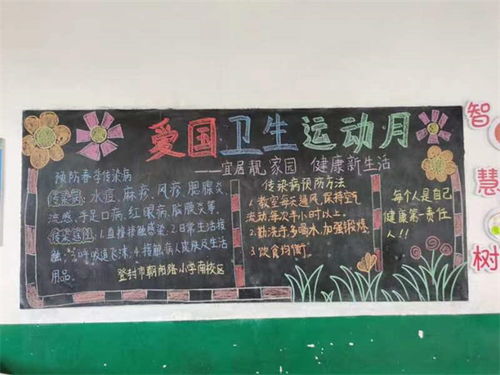 爱国卫生运动月
——宜居靓家园 健康新生活
预防春季传染病
传染病:水痘,麻疹,风疹,腮腺炎
流感,手足口病,红眼病,脑膜炎等.
传染途径:1.直接接触感染.2.日常生活接
触.3.呼吸道飞沫.4.接触病人皮肤及生活
用品.
登封市朝阳路小学南校区
传染病预防方法
1.教室每天通风,保持空气
流动,每次半小时以上.
2.勤洗手,多喝水,加强锻炼.
3.饮食均衡.
每个人是自己
健康第一责任
人!!
智
慧
树